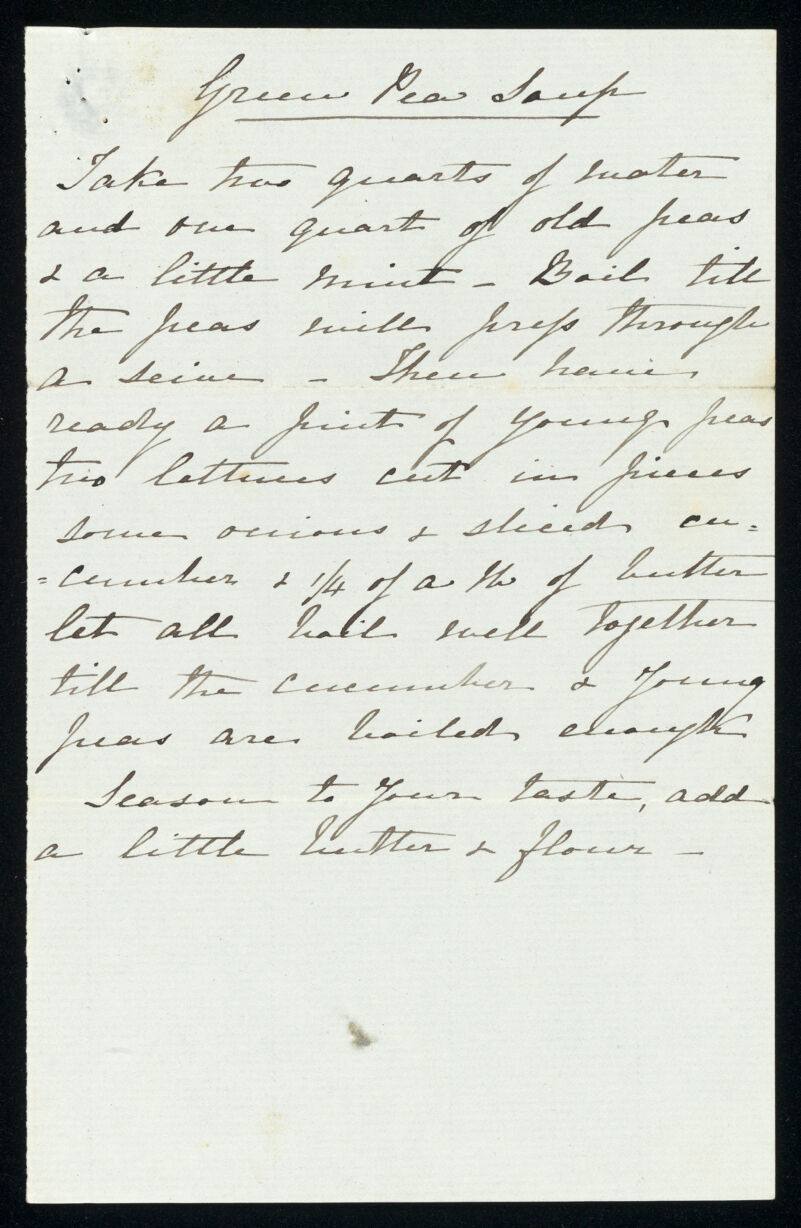 Green Pea Soup
Take two quarts of water
and one quart of old peas
& a little mint – Boil till
the peas will press through
a seive – Then have
ready a pint of young peas
two lettuces cut in pieces
some onions & sliced cu=
=cumber & 1/4 of a lb of butter
let all boil well together
till the cucumber & young
peas are boiled enough
Season to your taste, add
a little butter & flour –